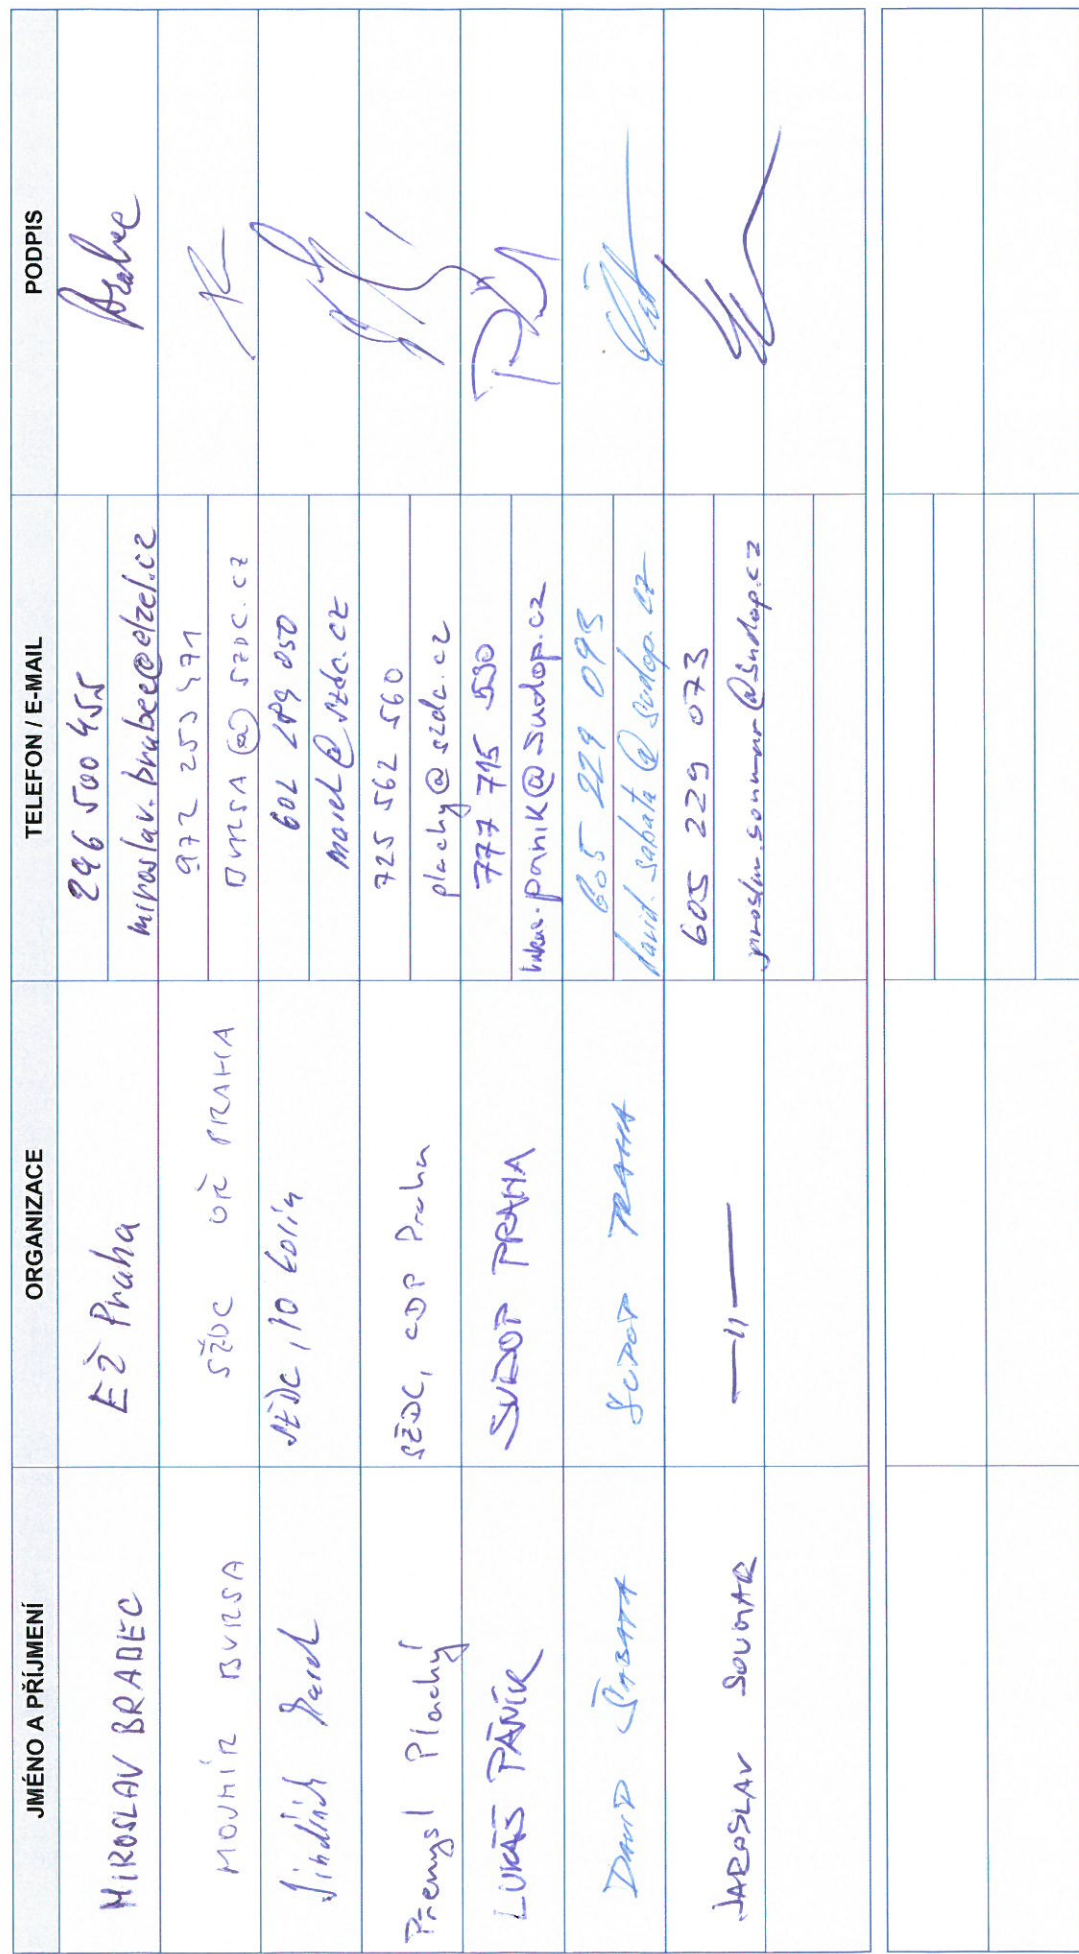 JMÉNO A PŘÍJMENÍ ORGANIZACE TELEFON / E-MAIL PODPIS
MIROSLAV BRABEC EŽ Praha 296 500 455
miroslav.brabec@elzel.cz
MOJMÍR BURSA SŽDC OŘ PRAHA 972 253 471
BURSA@SZDC.CZ
Jindřich Marel SŽDC, PO Kolín 602 289 050
marel@szdc.cz
Přemysl Plachý SŽDC, CDP Praha 725 562 560
plachy@szdc.cz
LUKÁŠ PÁNIK SUDOP PRAHA 777 715 530
lukas.panik@sudop.cz
DAVID ŠABATA SUDOP PRAHA 605 229 093
david.sabata@sudop.cz
JAROSLAV SOUMAR —"— 605 229 073
jaroslav.soumar@sudop.cz